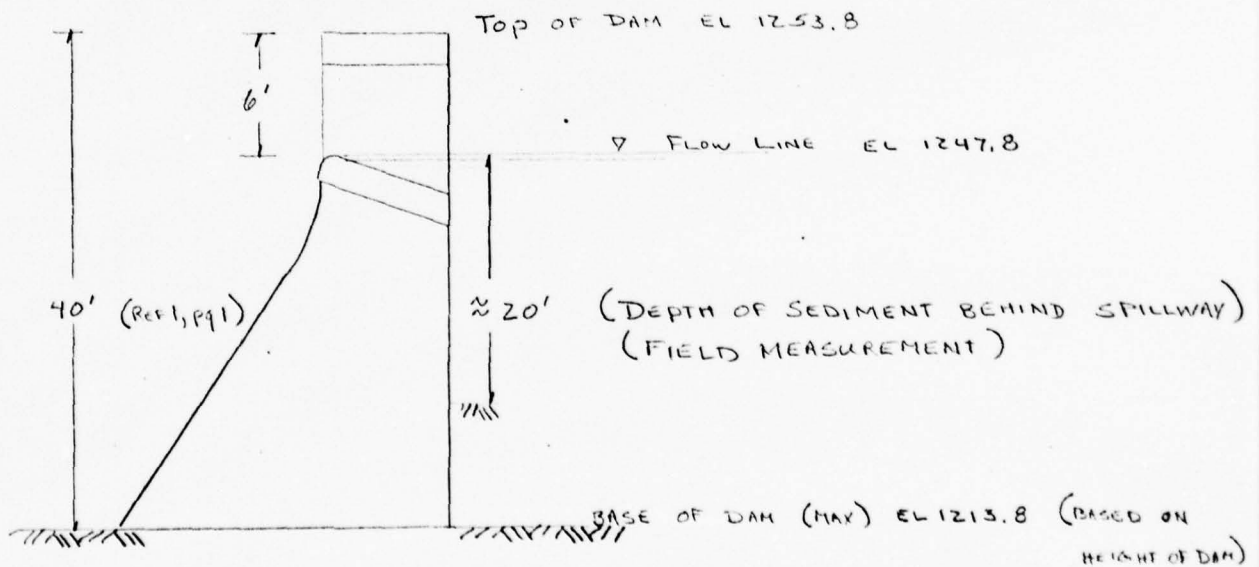 TOP OF DAM EL 1253.8
6'
▽ FLOW LINE EL 1247.8
40' (REF 1, pg 1)
≈ 20' (DEPTH OF SEDIMENT BEHIND SPILLWAY)
(FIELD MEASUREMENT)
BASE OF DAM (MAX) EL 1213.8 (BASED ON
HEIGHT OF DAM)